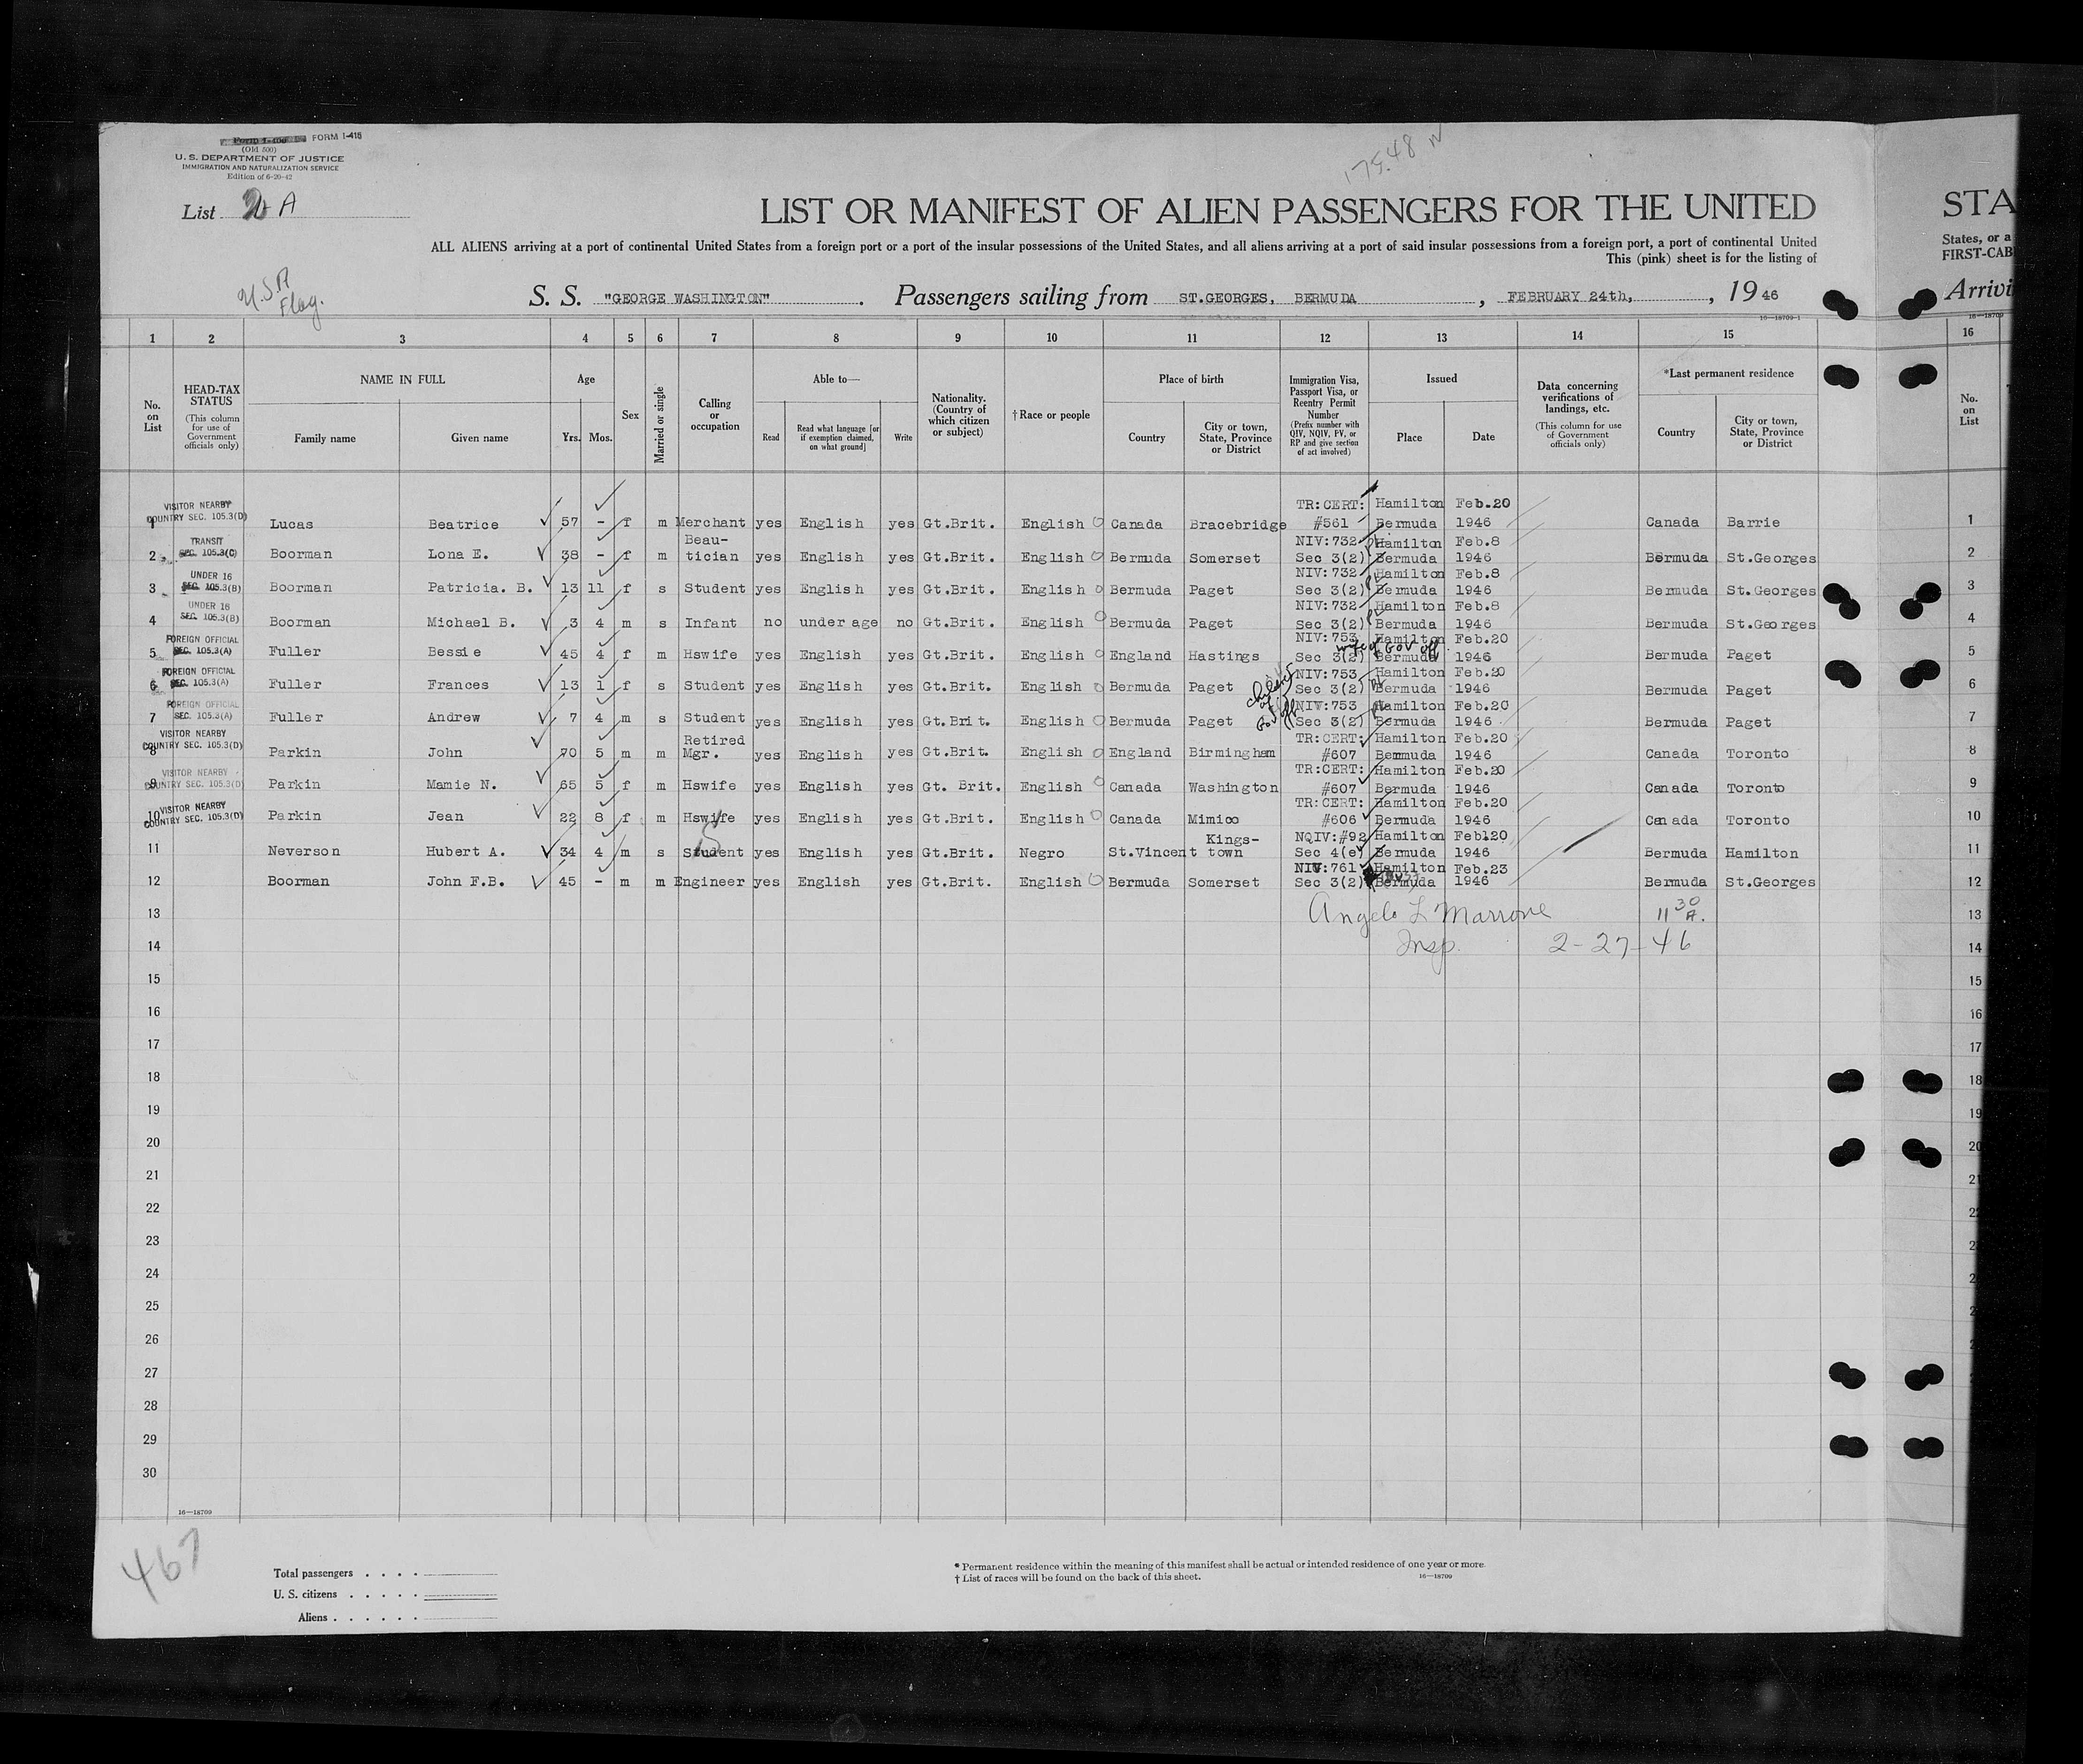 Form I-466 FORM I-415
(Old 500)
U. S. DEPARTMENT OF JUSTICE
IMMIGRATION AND NATURALIZATION SERVICE
Edition of 6-20-42
17548 N
List A
LIST OR MANIFEST OF ALIEN PASSENGERS FOR THE UNITED STA
ALL ALIENS arriving at a port of continental United States from a foreign port or a port of the insular possessions of the United States, and all aliens arriving at a port of said insular possessions from a foreign port, a port of continental United States, or a
This (pink) sheet is for the listing of FIRST-CAB
U.S.A Flag.
S. S. "GEORGE WASHINGTON" . Passengers sailing from ST.GEORGES, BERMUDA , FEBRUARY 24th, , 19 46 Arrivi
16—18709-1 16—18709
1 2 3 4 5 6 7 8 9 10 11 12 13 14 15 16
No. on List
HEAD-TAX STATUS (This column for use of Government officials only)
NAME IN FULL
Family name Given name
Age
Yrs. Mos.
Sex
Married or single
Calling or occupation
Able to—
Read Read what language [or if exemption claimed, on what ground] Write
Nationality. (Country of which citizen or subject)
† Race or people
Place of birth
Country City or town, State, Province or District
Immigration Visa, Passport Visa, or Reentry Permit Number (Prefix number with QIV, NQIV, PV, or RP and give section of act involved)
Issued
Place Date
Data concerning verifications of landings, etc. (This column for use of Government officials only)
*Last permanent residence
Country City or town, State, Province or District
No. on List
1 VISITOR NEARBY COUNTRY SEC. 105.3(D) Lucas Beatrice 57 - f m Merchant yes English yes Gt.Brit. English Canada Bracebridge TR:CERT: #561 Hamilton Bermuda Feb.20 1946 Canada Barrie 1
2 TRANSIT SEC. 105.3(C) Boorman Lona E. 38 - f m Beau- tician yes English yes Gt.Brit. English Bermuda Somerset NIV:732 Sec 3(2) Hamilton Bermuda Feb.8 1946 Bermuda St.Georges 2
3 UNDER 16 SEC. 105.3(B) Boorman Patricia. B. 13 11 f s Student yes English yes Gt.Brit. English Bermuda Paget NIV:732 Sec 3(2) Hamilton Bermuda Feb.8 1946 Bermuda St.Georges 3
4 UNDER 16 SEC. 105.3(B) Boorman Michael B. 3 4 m s Infant no under age no Gt.Brit. English Bermuda Paget NIV:732 Sec 3(2) Hamilton Bermuda Feb.8 1946 Bermuda St.Georges 4
5 FOREIGN OFFICIAL SEC. 105.3(A) Fuller Bessie 45 4 f m Hswife yes English yes Gt.Brit. English England Hastings NIV:753 Sec 3(2) wife of Gov off. Hamilton Bermuda Feb.20 1946 Bermuda Paget 5
6 FOREIGN OFFICIAL SEC. 105.3(A) Fuller Frances 13 1 f s Student yes English yes Gt.Brit. English Bermuda Paget NIV:753 Sec 3(2) Hamilton Bermuda Feb.20 1946 Bermuda Paget 6
7 FOREIGN OFFICIAL SEC. 105.3(A) Fuller Andrew 7 4 m s Student yes English yes Gt.Brit. English Bermuda Paget NIV:753 Sec 3(2) Hamilton Bermuda Feb.20 1946 Bermuda Paget 7
8 VISITOR NEARBY COUNTRY SEC. 105.3(D) Parkin John 70 5 m m Retired Mgr. yes English yes Gt.Brit. English England Birmingham TR:CERT: #607 Hamilton Bermuda Feb.20 1946 Canada Toronto 8
9 VISITOR NEARBY COUNTRY SEC. 105.3(D) Parkin Mamie N. 65 5 f m Hswife yes English yes Gt. Brit. English Canada Washington TR:CERT: #607 Hamilton Bermuda Feb.20 1946 Canada Toronto 9
10 VISITOR NEARBY COUNTRY SEC. 105.3(D) Parkin Jean 22 8 f m Hswife yes English yes Gt.Brit. English Canada Mimico TR:CERT: #606 Hamilton Bermuda Feb.20 1946 Canada Toronto 10
11 Neverson Hubert A. 34 4 m s Student yes English yes Gt.Brit. Negro St.Vincent Kings- town NQIV:#92 Sec 4(e) Hamilton Bermuda Feb.20 1946 Bermuda Hamilton 11
12 Boorman John F.B. 45 - m m Engineer yes English yes Gt.Brit. English Bermuda Somerset NIV:761 Sec 3(2) Hamilton Bermuda Feb.23 1946 Bermuda St.Georges 12
13 Angelo L Marrone 11 30 A. 13
14 Insp. 2-27-46 14
15 15
16 16
17 17
18 18
19 19
20 20
21
22
23
24
25
26
27
28
29
30
16—18709
467
Total passengers . . . .
U. S. citizens . . . . .
Aliens . . . . . .
* Permanent residence within the meaning of this manifest shall be actual or intended residence of one year or more.
† List of races will be found on the back of this sheet. 16—18709